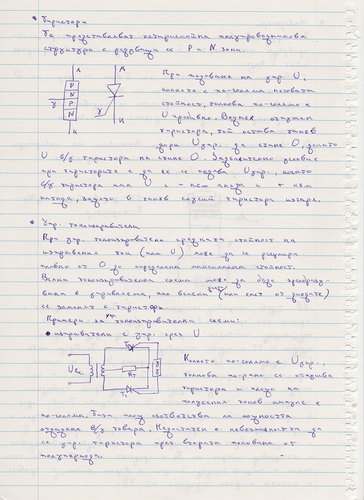 Тиристори
Те представляват четирислойна полупроводникова
структура с редуващи се P и N зони.
A
P
N
P
N
У
К
A
У
К
При подаване на упр. U,
колкото е по-голяма неговата
стойност, толкова по-голямо е
U пробивно. Веднъж отпушен
тиристора, той остава такъв
дори Uупр. да стане 0, докато
U в/у тиристора не стане 0. Задължително условие
при тиристорите е да не се подава Uупр., когато
в/у тиристора има U с - към анода и + към
катода, защото в такъв случай тиристора изгаря.
Упр. токоизправители
При упр. токоизправители средната стойност на
изправения ток (или U) може да се регулира
плавно от 0 до определена максимална стойност.
Всяка токоизправителна схема може да бъде преобразу-
вана в управляема, ако всички (или част от диодите)
се заменят с тиристори.
Примери за упр. токоизправителни схеми:
изправители с упр. през U
Uвх.
T1
Rт
T2
Колкото по-голямо е Uупр.
толкова по-рано се отпушва
тиристора и площа на
получения токов импулс е
по-голяма. Тази площ съответства на мощността
отдадена в/у товара. Недостатък е невъзможността да
се упр. тиристора през втората половина от
полупериода.